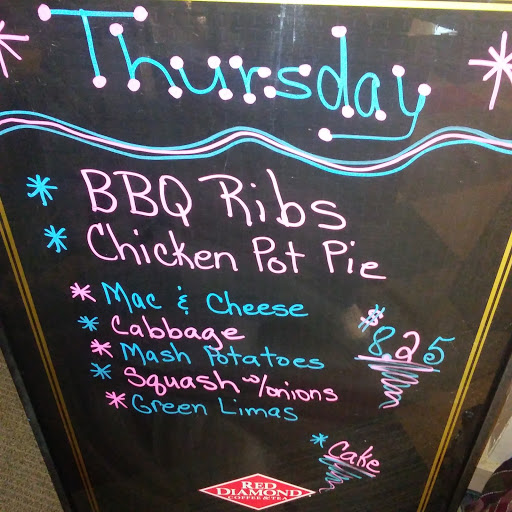 Thursday
BBQ Ribs
Chicken Pot Pie
Mac & Cheese
Cabbage
Mash Potatoes
Squash w/onions
Green Limas
$8.25
Cake
RED
DIAMOND
COFFEE & TEA